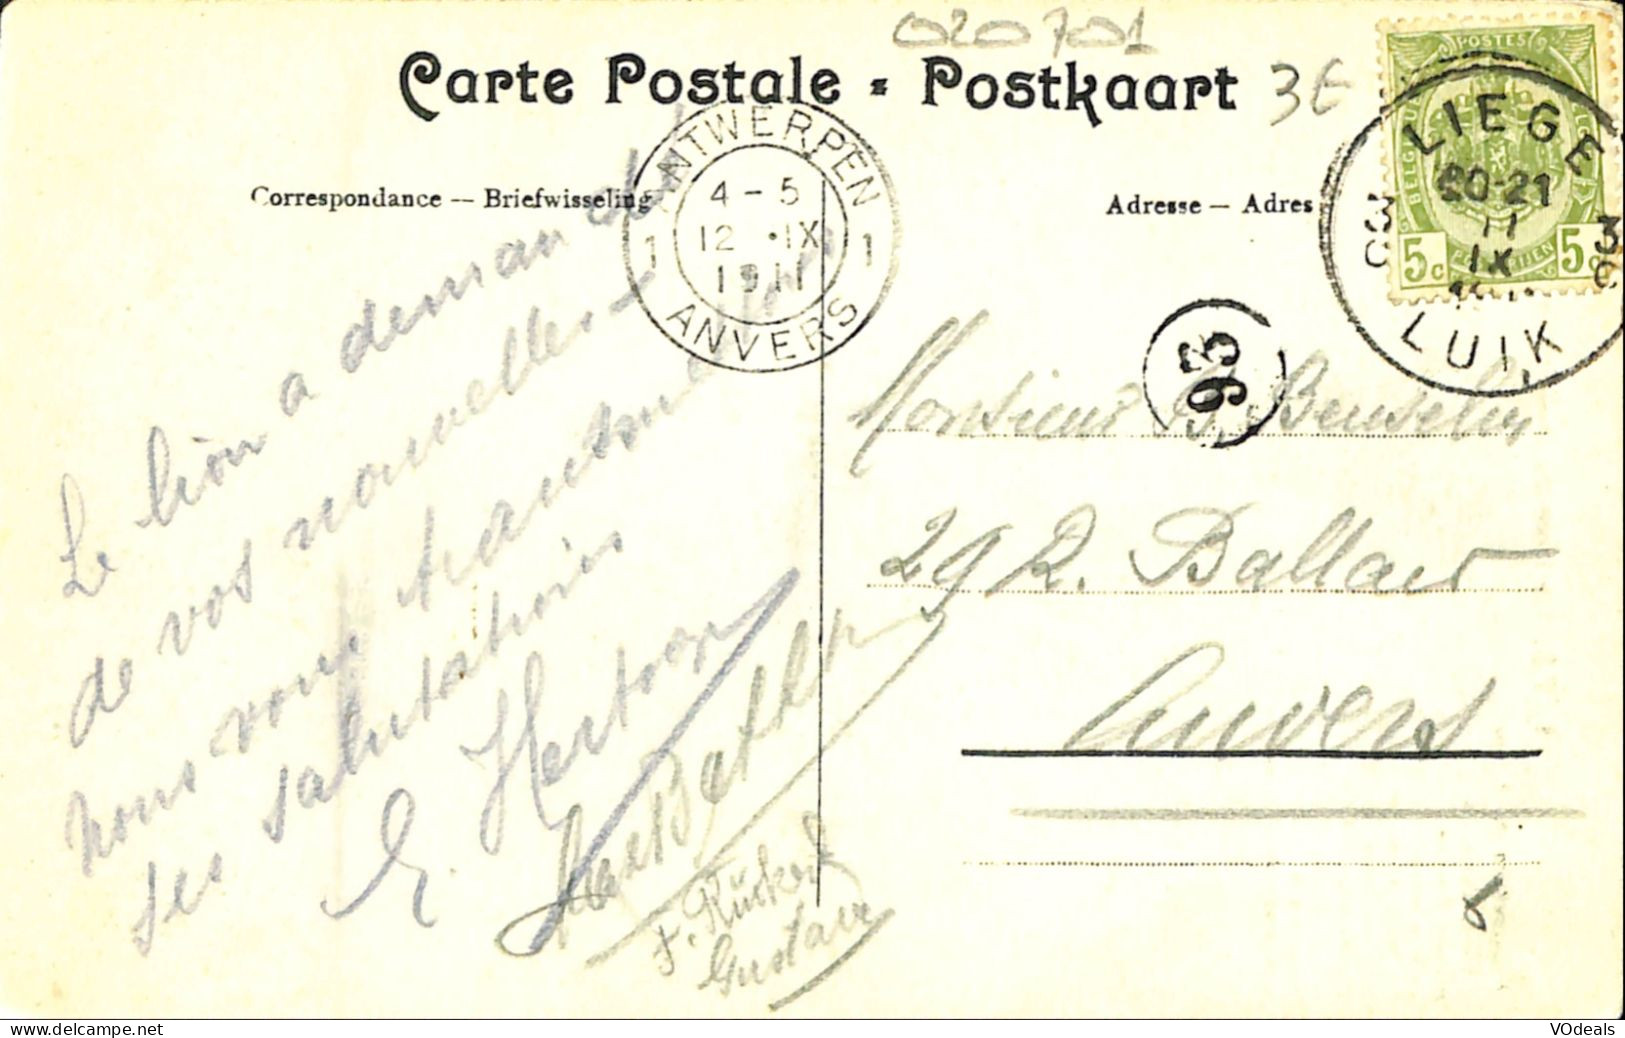 020701
Carte Postale - Postkaart 3€
Correspondance — Briefwisseling
Adresse — Adres
ANTWERPEN
4 - 5
12 · IX
1911
1 1
ANVERS
POSTES
BELGIQUE
5c 5c
LIEGE
20-21
11
IX
3C 3C
LUIK
93
Le lion a demandé
de vos nouvelles —
nous vous transmettons
ses salutations
E. Hertogs
F. Rückert
Gustave
Monsieur G. Beuselin
29 R. Ballaer
Anvers
VOdeals